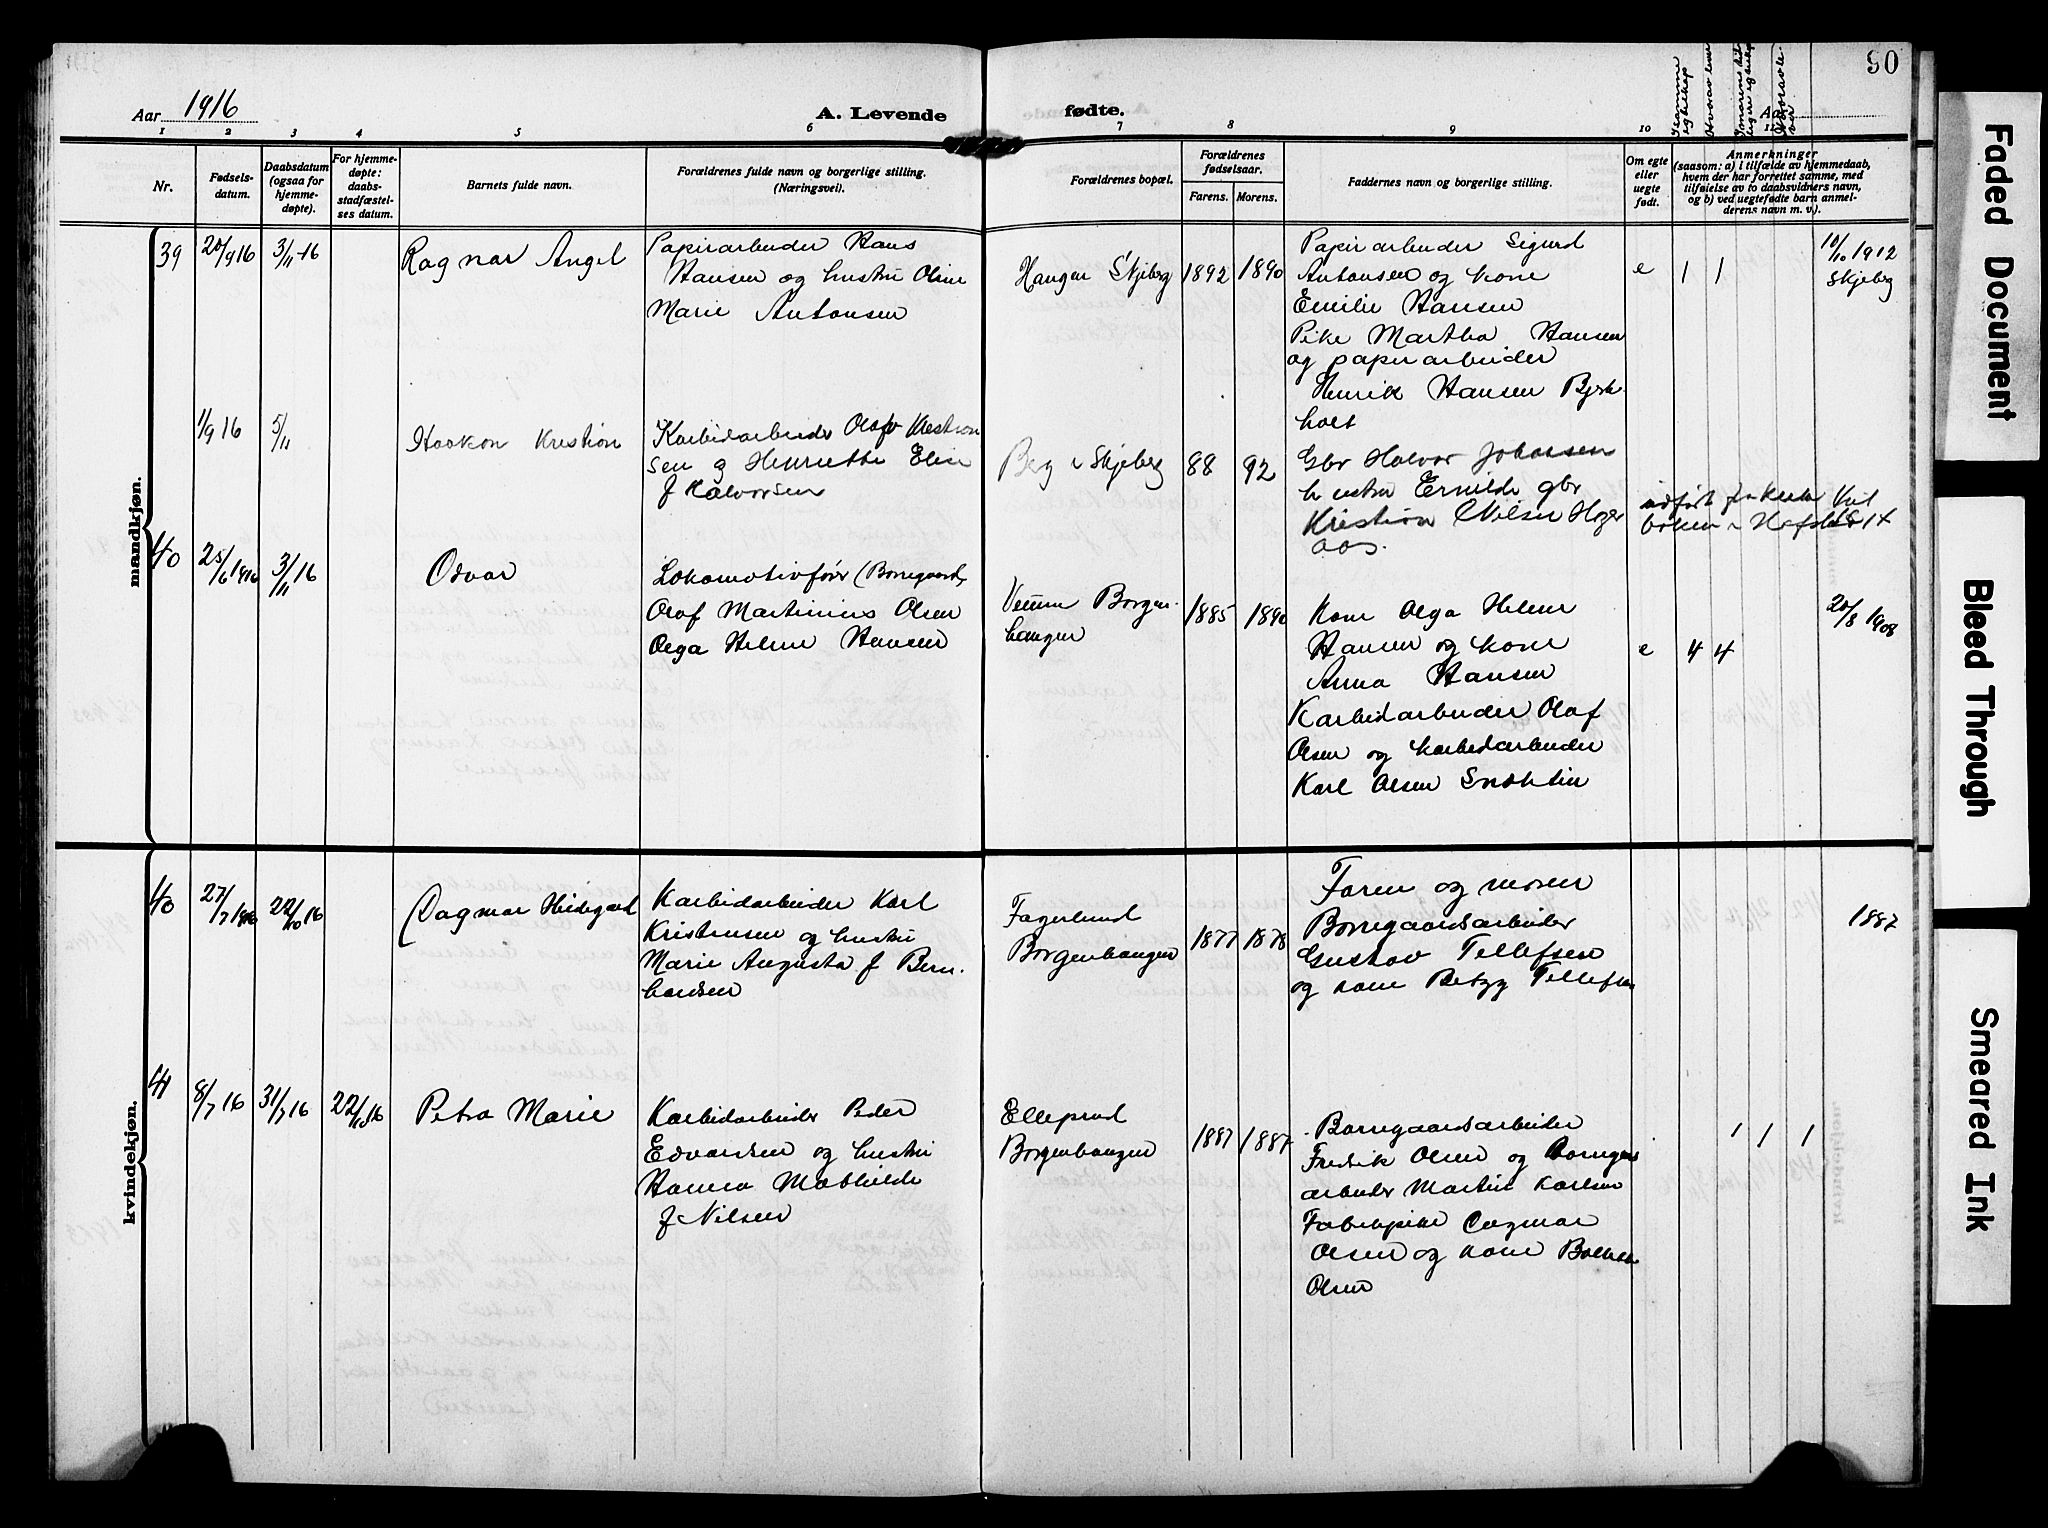 90
Aar 1916
A. Levende fødte.
1 2 3 4 5 6 7 8 9 10
Nr.
Fødsels-
datum.
Daabsdatum
(ogsaa for
hjemme-
døpte).
For hjemme-
døpte:
daabs-
stadfæstel-
ses datum.
Barnets fulde navn.
Forældrenes fulde navn og borgerlige stilling.
(Næringsvei).
Forældrenes bopæl.
Forældrenes
fødselsaar.
Farens. Morens.
Faddernes navn og borgerlige stilling.
Om egte
eller
uegte
født.
Anmerkninger
(saasom: a) i tilfælde av hjemmedaab,
hvem der har forrettet samme, med
tilføielse av to daabsvidners navn,
og b) ved uegtefødte barn anmel-
derens navn m. v.).
mandkjøn.
39
20/9 16
3/11 -16
Ragnar Angel
Papirarbeider Hans
Hansen og hustru Oline
Marie Antonsen
Haugen Skjeberg
1892 1890
Papirarbeider Sigurd
Antonsen og kone
Emilie Hansen
Pike Martha Hansen
og papirarbeider
Henrik Hansen Bjerk
holt
e 1 1
10/10 1912
Skjeberg
1/9 16
5/11
Haakon Kristian
Karbidarbeider Olaf Kristian
sen og Henriette Elise
f Halvorsen
Berg i Skjeberg
88 92
Gbr Halvor Johansen
hustru Ernilde gbr
Kristian Nilsen Hoger
aas.
indført fra kirke
boken i Hafslund
40
25/6 1916
3/11 16
Odvar
Lokomotivfører (Borregaard)
Olaf Martinius Olsen
Olga Helene Hansen
Borgen-
haugen
1885 1890
Kone Olga Helene
Hansen og kone
Anna Hansen
Karbidarbeider Olaf
Olsen og karbidarbeider
Karl Olsen
e 4 4
20/8 1908
kvindekjøn.
40
27/7 1916
22/10 16
Dagmar Hildegard
Karbidarbeider Karl
Kristensen og hustru
Marie Augusta f Bern-
hardsen
Fagerlund
Borgenhaugen
1877 1878
Faren og moren
Borregaardsarbeider
Gustav Tellefsen
og kone Betzy Tellefsen
1887
41
8/7 16
31/7 16
22/10 16
Petra Marie
Karbidarbeider Peder
Edvardsen og hustru
Hanna Mathilde
f Nilsen
Elleprud
Borgenhaugen
1887 1887
Borregaardsarbeider
Fredrik Olsen og Borregaards
arbeider Martin Karlsen
Fabrikpike Dagmar
Olsen og kone
Olsen
1 1 1
Faded Document
Bleed Through
Smeared Ink